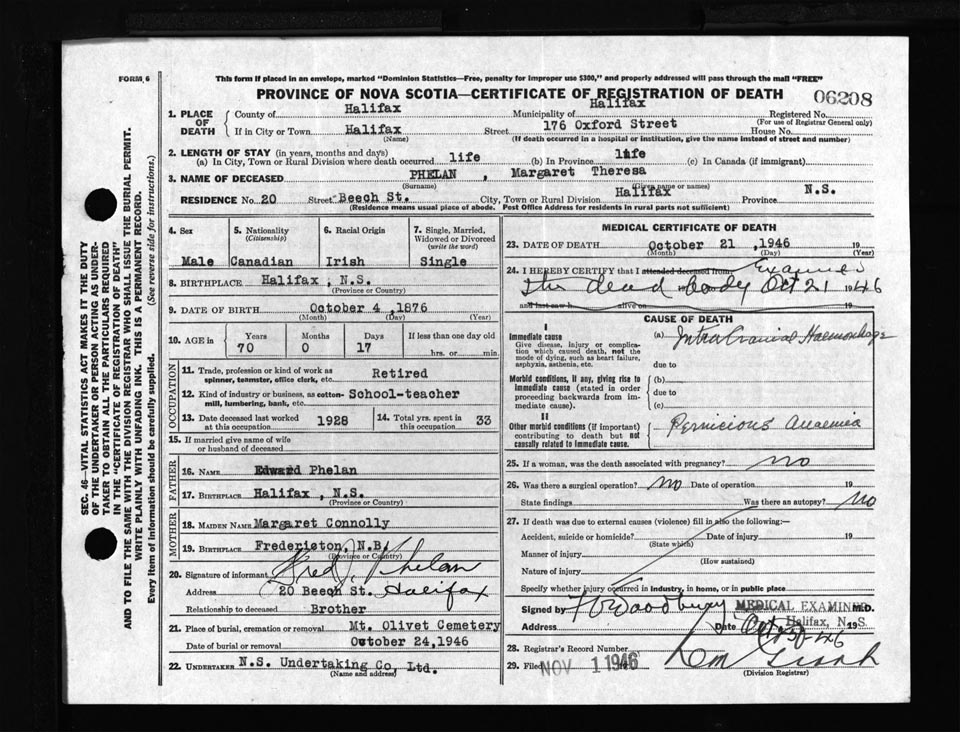 FORM 6
This form if placed in an envelope, marked "Dominion Statistics—Free, penalty for improper use $300," and properly addressed will pass through the mail "FREE"
PROVINCE OF NOVA SCOTIA—CERTIFICATE OF REGISTRATION OF DEATH
06208
1. PLACE OF DEATH
County of Halifax
Municipality of Halifax
Registered No.
(For use of Registrar General only)
If in City or Town Halifax Street 176 Oxford Street House No.
(Name) (If death occurred in a hospital or institution, give the name instead of street and number)
2. LENGTH OF STAY (in years, months and days)
(a) In City, Town or Rural Division where death occurred life (b) In Province life (c) In Canada (if immigrant)
3. NAME OF DECEASED PHELAN , Margaret Theresa
(Surname) (Given name or names)
RESIDENCE No. 20 Street Beech St. City, Town or Rural Division Halifax Province N.S.
(Residence means usual place of abode. Post Office Address for residents in rural parts not sufficient)
4. Sex
Male
5. Nationality
(Citizenship)
Canadian
6. Racial Origin
Irish
7. Single, Married, Widowed or Divorced
(write the word)
Single
8. BIRTHPLACE Halifax, N.S.
(Province or Country)
9. DATE OF BIRTH October 4, 1876
(Month) (Day) (Year)
10. AGE in
Years Months Days If less than one day old
70 0 17 hrs. or min.
OCCUPATION
11. Trade, profession or kind of work as spinner, teamster, office clerk, etc. Retired
12. Kind of industry or business, as cotton-mill, lumbering, bank, etc. School-teacher
13. Date deceased last worked at this occupation 1928
14. Total yrs. spent in this occupation 33
15. If married give name of wife or husband of deceased
FATHER
16. NAME Edward Phelan
17. BIRTHPLACE Halifax, N.S.
(Province or Country)
MOTHER
18. MAIDEN NAME Margaret Connolly
19. BIRTHPLACE Fredericton, N.B.
(Province or Country)
20. Signature of informant Fred J. Phelan
Address 20 Beech St. Halifax
Relationship to deceased Brother
21. Place of burial, cremation or removal Mt. Olivet Cemetery
Date of burial or removal October 24, 1946
22. UNDERTAKER N.S. Undertaking Co, Ltd.
(Name and address)
MEDICAL CERTIFICATE OF DEATH
23. DATE OF DEATH October 21, 1946 19
(Month) (Day) (Year)
24. I HEREBY CERTIFY that I attended deceased from Examined
the dead body Oct 21 1946
and last saw h alive on 19
CAUSE OF DEATH
I
Immediate cause
Give disease, injury or complication which caused death, not the mode of dying, such as heart failure, asphyxia, asthenia, etc.
(a) Intra Cranial Haemorrhage
due to
Morbid conditions, if any, giving rise to immediate cause (stated in order proceeding backwards from immediate cause).
(b)
due to
(c)
II
Other morbid conditions (if important) contributing to death but not causally related to immediate cause.
Pernicious Anaemia
25. If a woman, was the death associated with pregnancy? no
26. Was there a surgical operation? No Date of operation 19
State findings Was there an autopsy? No
27. If death was due to external causes (violence) fill in also the following:
Accident, suicide or homicide? Date of injury 19
(State which)
Manner of injury
(How sustained)
Nature of injury
Specify whether injury occurred in industry, in home, or in public place
Signed by Woodbury MEDICAL EXAMINER M.D.
Address Date Halifax, N.S. 19
28. Registrar's Record Number
29. Filed NOV 1 1946
(Division Registrar)
SEC. 46—VITAL STATISTICS ACT MAKES IT THE DUTY OF THE UNDERTAKER OR PERSON ACTING AS UNDERTAKER TO OBTAIN ALL THE PARTICULARS REQUIRED IN THE "CERTIFICATE OF REGISTRATION OF DEATH"
AND TO FILE THE SAME WITH THE DIVISION REGISTRAR WHO SHALL ISSUE THE BURIAL PERMIT.
WRITE PLAINLY WITH UNFADING INK. THIS IS A PERMANENT RECORD.
Every item of information should be carefully supplied. (See reverse side for instructions.)